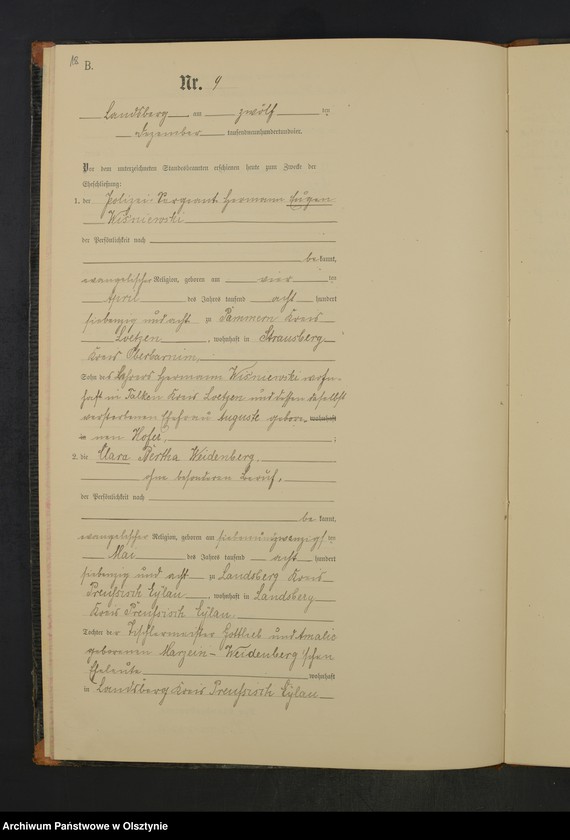 B.
Nr. 9
Landsberg am zwölf ten
Dezember tausendneunhundertundvier.
Vor dem unterzeichneten Standesbeamten erschienen heute zum Zwecke der
Eheschließung:
1. der Polizei-Sergeant Hermann Eugen
Wisniewski
der Persönlichkeit nach
be kannt,
evangelischer Religion, geboren am vier ten
April des Jahres tausend acht hundert
siebenzig und acht zu Pammern Kreis
Loetzen, wohnhaft in Strausberg
Kreis Oberbarnim.
Sohn des Hermann Wisniewski wohn-
haft in Talken Kreis Loetzen und dessen daselbst
verstorbenen Ehefrau Auguste gebore- wohnhaft
in nen
2. die Clara Bertha Weidenberg.
ohne besonderen Beruf.
der Persönlichkeit nach
be kannt,
evangelischer Religion, geboren am siebenundzwanzigsten
Mai des Jahres tausend acht hundert
siebenzig und acht zu Landsberg Kreis
Preußisch Eylau, wohnhaft in Landsberg
Kreis Preußisch Eylau.
Tochter der Tischlermeister Gottlieb und Amalie
geborenen Marzein-Weidenberg'schen
Eheleute wohnhaft
in Landsberg Kreis Preußisch Eylau
Archiwum Państwowe w Olsztynie